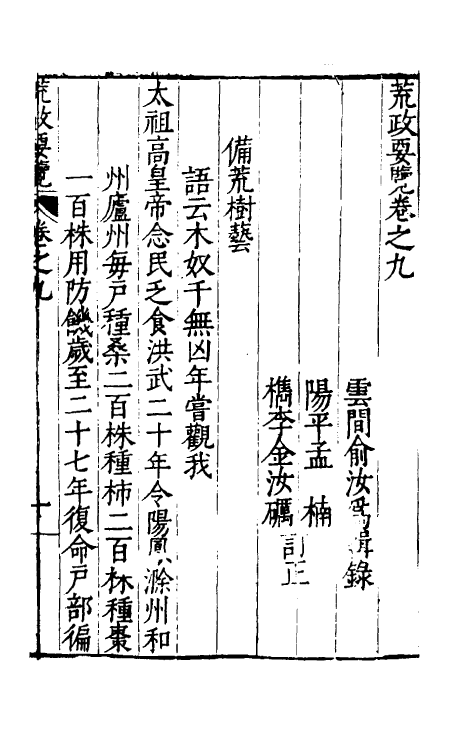 荒政要覽卷之九
雲間俞汝為輯錄
陽平孟楠
檇李金汝礪訂正
備荒樹藝
語云木奴千無凶年嘗觀我
太祖高皇帝念民乏食洪武二十年令陽鳳滁州和
州廬州每戶種桑二百株種柿二百株種棗
一百株用防饑歲至二十七年復命戶部徧
荒政要覽 卷之九 一